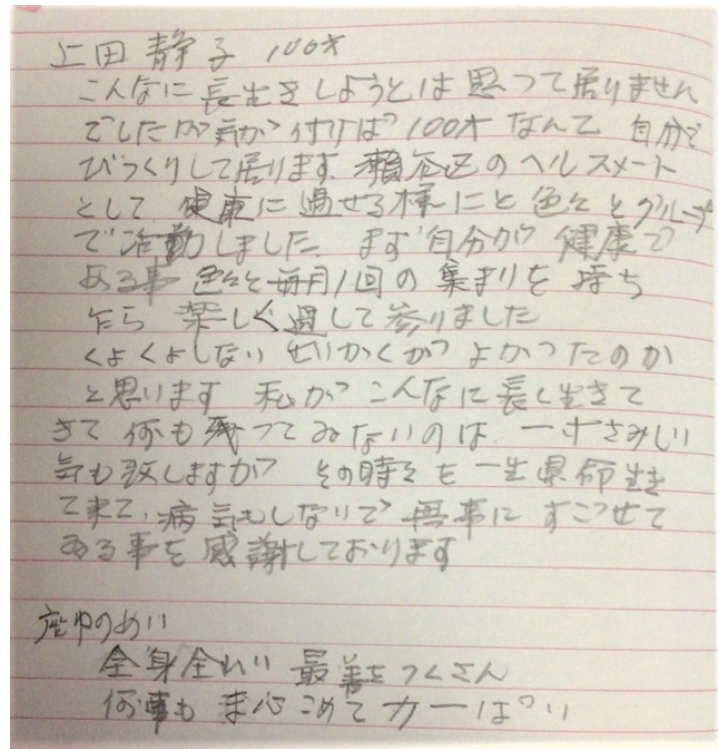 上田静子 100才
こんなに長生きしようとは思って居りません
でしたが気が付けば100才なんて 自分で
びっくりして居ります. 瀬谷区のヘルスメート
として 健康に過せる様にと色々とグループ
で活動しました. まず自分が健康で
ある事 色々と毎月1回の集まりを持ち
乍ら 楽しく過して参りました
くよくよしない せいかくがよかったのか
と思います 私がこんなに長く生きて
きて何も残ってゐないのは 一寸さみしい
気も致しますが その時々を一生県命生き
て来て、病気もしないで無事にすごせて
ゐる事を感謝しております
座ゆのめい
全身全れい 最善をつくさん
何事も ま心こめて 力一ぱい